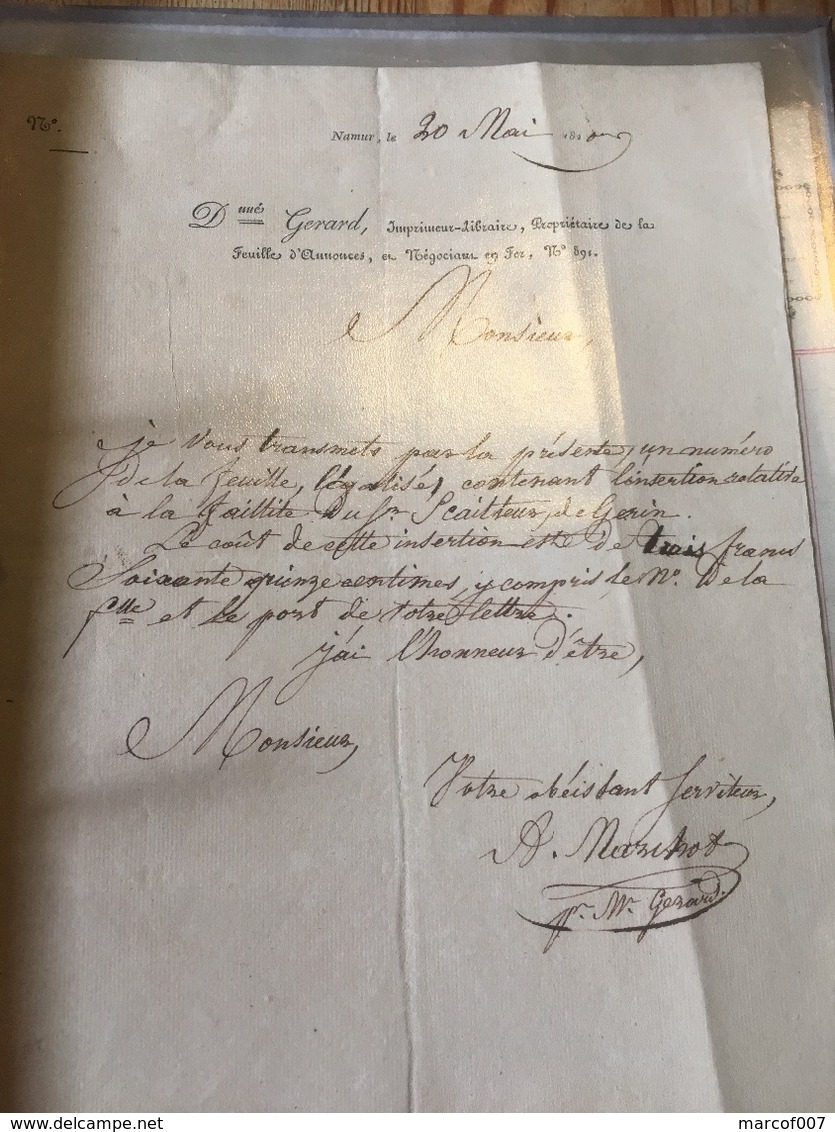 N°.
Namur, le 20 Mai 18
D.nné Gerard, Imprimeur-Libraire, Propriétaire de la
Feuille d'Annonces, et Négociant en Fer, N° 891.
Monsieur,
je vous transmets par la présente, un numéro
de la feuille, légalisé, contenant l'insertion relative
à la faillite du Sr de Gerin.
Le coût de cette insertion est de trois francs
Soixante quinze centimes, y compris le N°. de la
flle et le port de votre lettre.
j'ai l'honneur d'être,
Monsieur,
Votre obéissant Serviteur,
A. Marchot
pr. Mr. Gerard.
delcampe.net
marcof007